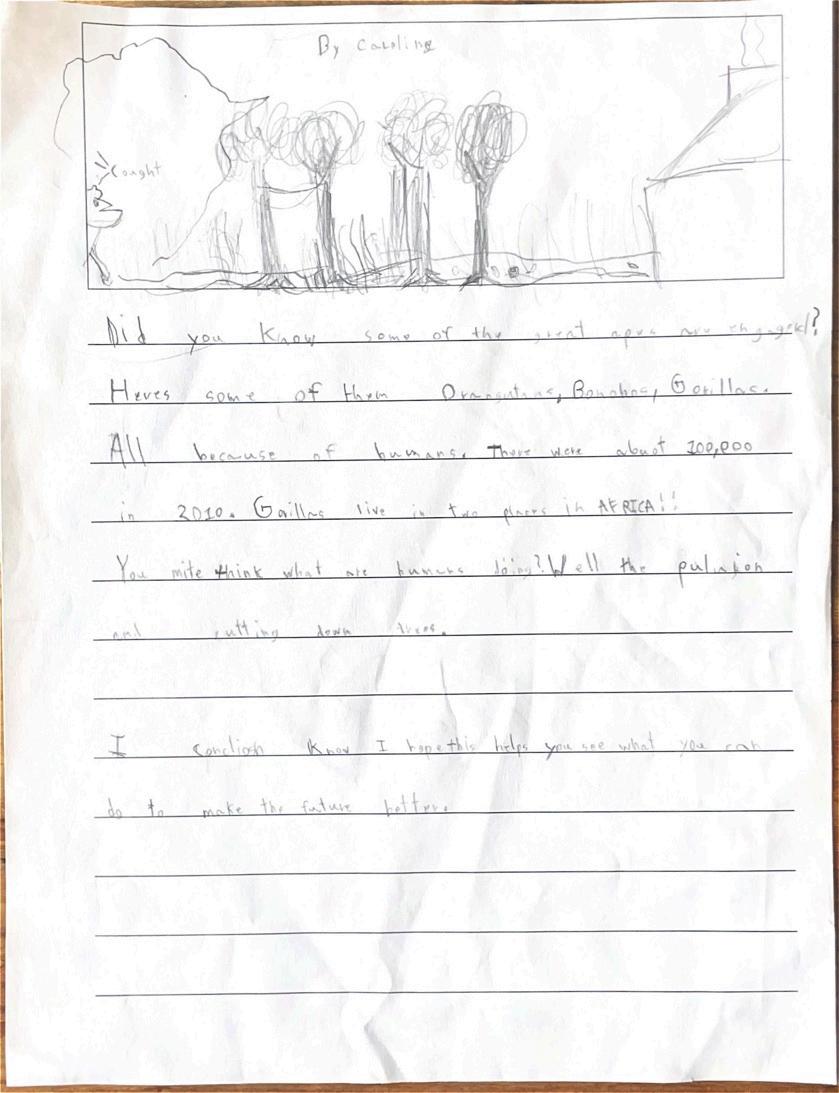 By Caroline
Cought
Did you know some of the great apes are engaged?
Heres some of them Orangutans, Bonobos, Gorillas.
All because of humans. There were abuot 100,000
in 2010. Gorillas live in two places in AFRICA!!
You mite think what are humans doing? Well the pulusion
and cutting down trees.
I conclioh know I hope this helps you see what you can
do to make the future better.